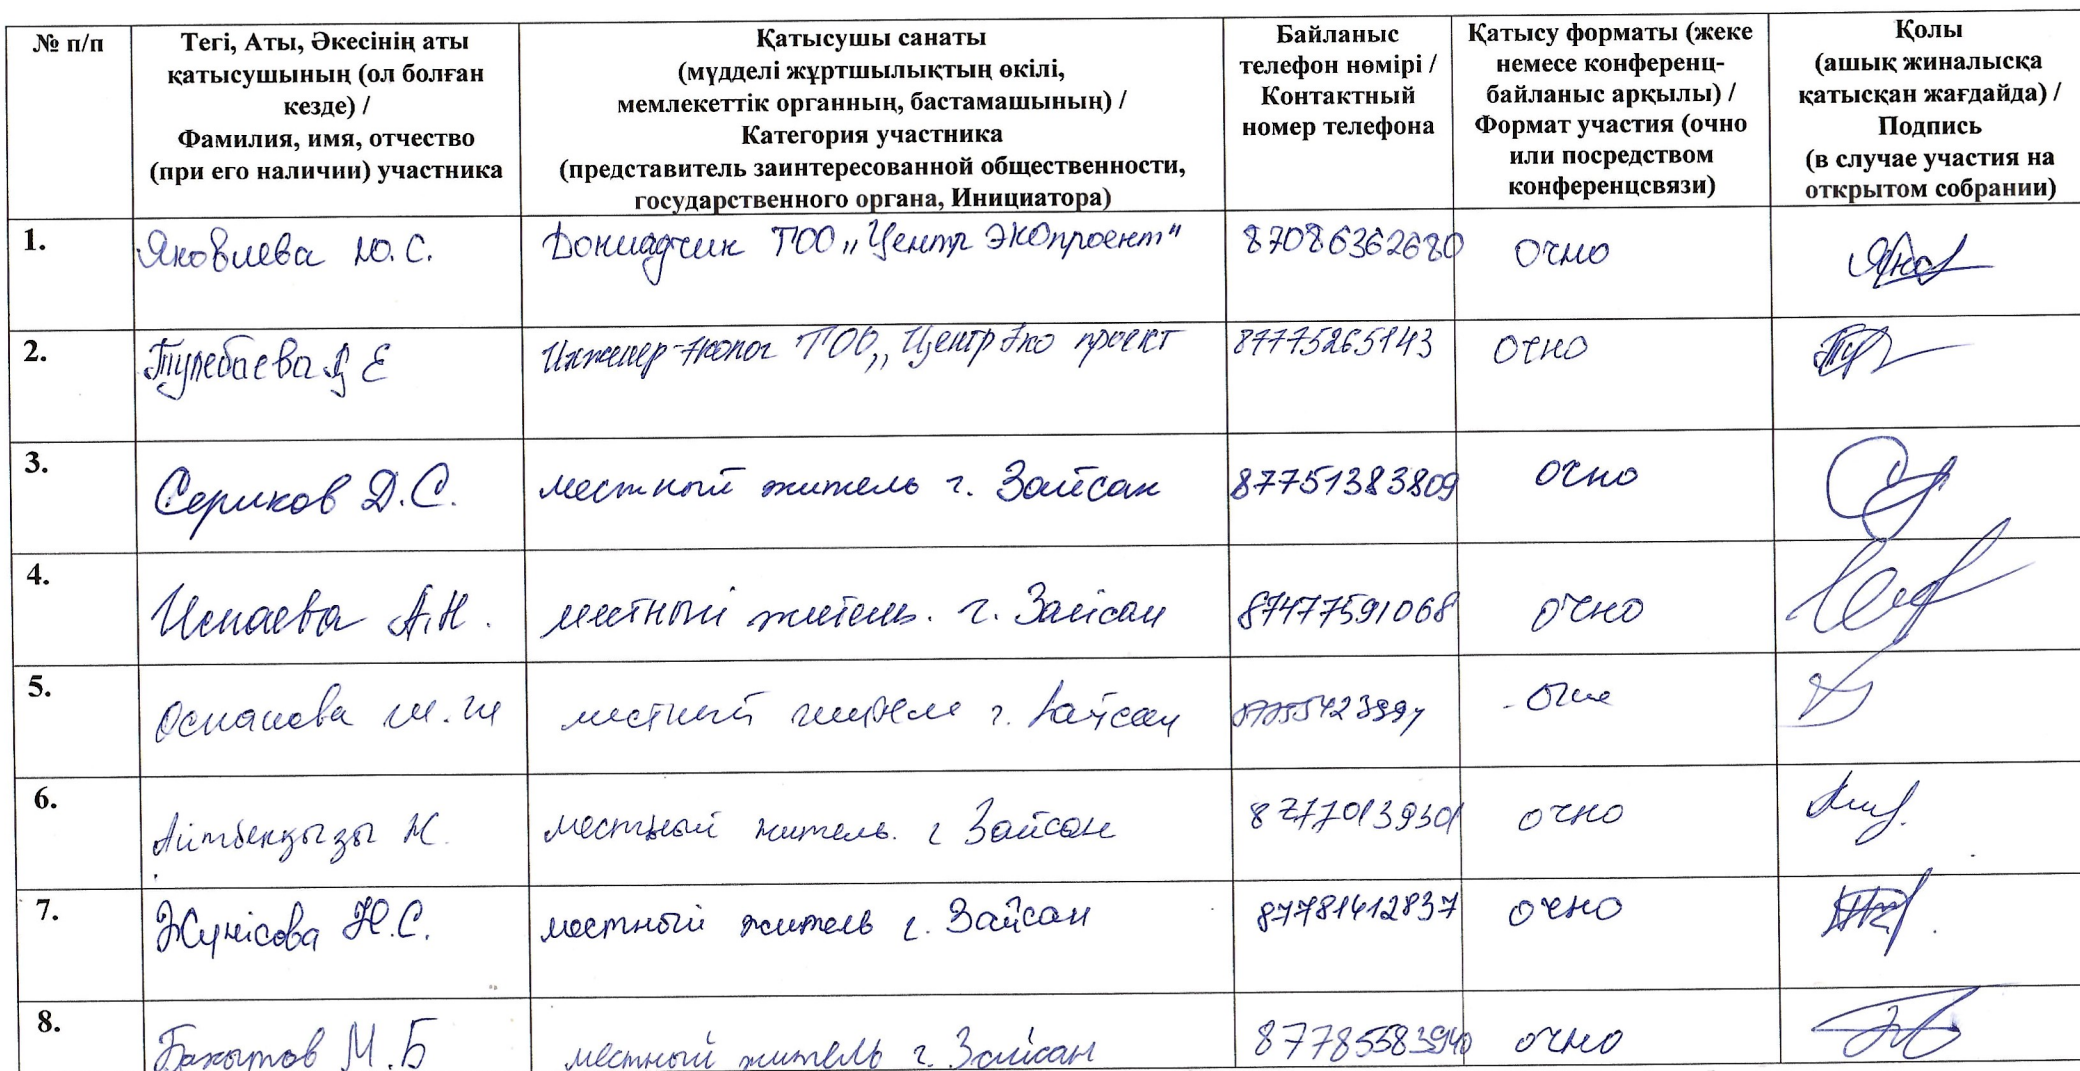 № п/п
Тегі, Аты, Әкесінің аты
қатысушының (ол болған
кезде) /
Фамилия, имя, отчество
(при его наличии) участника
Қатысушы санаты
(мүдделі жұртшылықтың өкілі,
мемлекеттік органның, бастамашының) /
Категория участника
(представитель заинтересованной общественности,
государственного органа, Инициатора)
Байланыс
телефон нөмірі /
Контактный
номер телефона
Қатысу форматы (жеке
немесе конференц-
байланыс арқылы) /
Формат участия (очно
или посредством
конференцсвязи)
Қолы
(ашық жиналысқа
қатысқан жағдайда) /
Подпись
(в случае участия на
открытом собрании)
1. Яковлева Ю.С. Докладчик ТОО „Центр ЭКОпроект" 87086362680 очно
2. Тулебаева Е Инженер-эколог ТОО „Центр Эко проект 87775265143 очно
3. Сериков Д.С. местный житель г. Зайсан 87751383809 очно
4. Испаева А.Н. местный житель. г. Зайсан 87477591068 очно
5. Оспанова Ш.Ш местный жители г. Зайсан очно
6. Айтбекқызы К. местный житель. г Зайсан очно
7. Жүнісова Н.С. местный житель г. Зайсан 87781412837 очно
8. Бахытов М.Б местный житель г. Зайсан 87785583940 очно